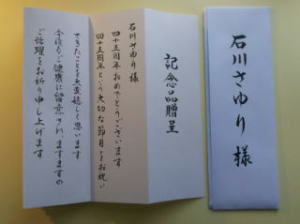 石川さゆり様
記念品贈呈
石川さゆり様
四十五周年おめでとうございます
四十五周年という大切な節目をお祝い
できたことを大変嬉しく思います
今後もご健康に留意されますますの
ご活躍をお祈り申し上げます